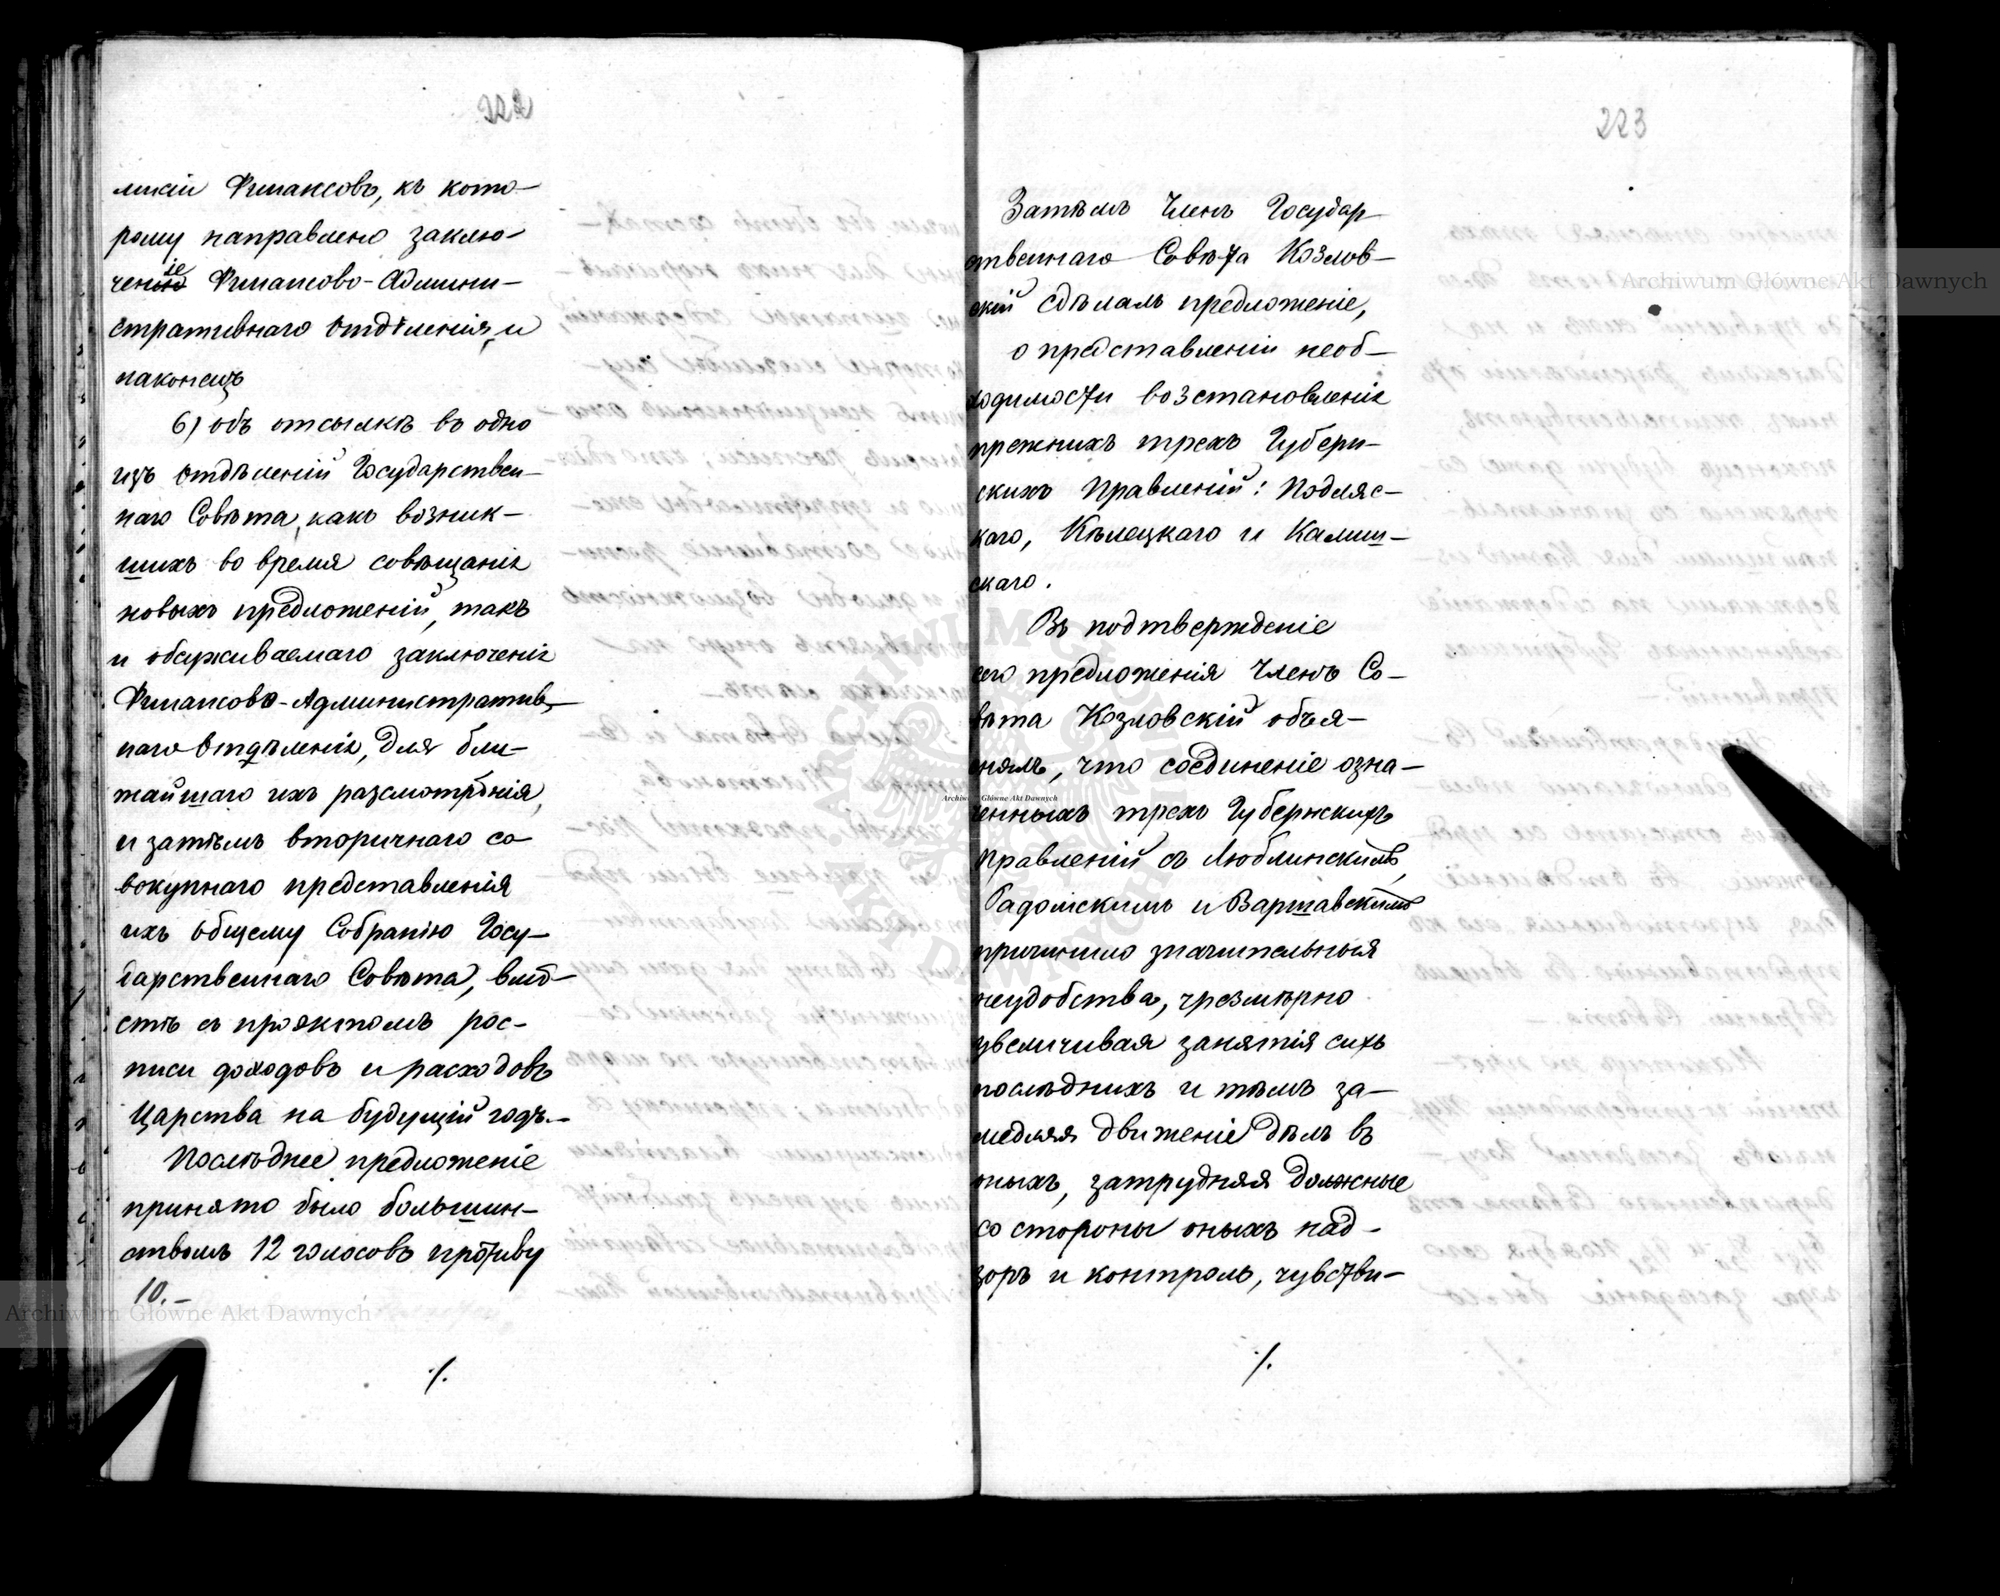 222
мисіи Финансовъ, къ кото-
рому направлено заклю-
ченіе Финансово-Админи-
стративнаго Отдѣленія, и
наконецъ
6) объ отсылкѣ въ одно
изъ Отдѣленій Государствен-
наго Совѣта, какъ возник-
шихъ во время совѣщанія
новыхъ предложеній, такъ
и обсуживаемаго заключенія
Финансово-Административ-
наго Отдѣленія, для бли-
жайшаго ихъ разсмотрѣнія,
и затѣмъ вторичнаго со-
вокупнаго представленія
ихъ Общему Собранію Госу-
дарственнаго Совѣта, вмѣ-
стѣ съ проэктомъ рос-
писи доходовъ и расходовъ
Царства на будущій годъ.-
Послѣднее предложеніе
принято было большин-
ствомъ 12 голосовъ противу
10.-
./.
223
Затѣмъ Членъ Государ-
ственнаго Совѣта Козлов-
скій сдѣлалъ предложеніе,
о представленіи необ-
ходимости возстановленія
прежнихъ трехъ Губерн-
скихъ Правленій: Подляс-
каго, Кѣлецкаго и Калиш-
скаго.
Въ подтвержденіе
сего предложенія Членъ Со-
вѣта Козловскій объя-
снялъ, что соединеніе озна-
ченныхъ трехъ Губернскихъ
Правленій съ Люблинскимъ,
Радомскимъ и Варшавскимъ
причинило значительныя
неудобства, чрезмѣрно
увеличивая занятія сихъ
послѣднихъ и тѣмъ за-
медляя движеніе дѣлъ въ
оныхъ, затрудняя должные
со стороны оныхъ над-
зоръ и контроль, чувстви-
./.
Archiwum Główne Akt Dawnych
Archiwum Główne Akt Dawnych
Archiwum Główne Akt Dawnych
ARCHIWUM GŁÓWNE AKT DAWNYCH